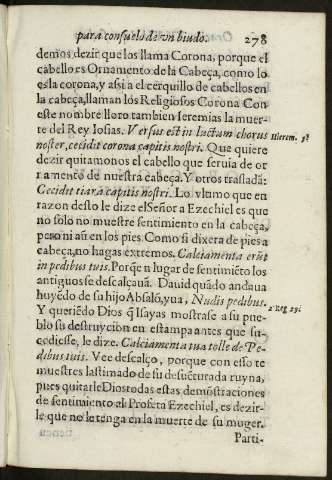 para consuelo de vn biudo. 278
demos dezir que los llama Corona, porque el
cabello es Ornamento de la Cabeça, como lo
es la corona, y aſsi a el cerquillo de cabellos en
la cabeça, llaman los Religiosos Corona Con
este nombre lloro tambien Ieremias la muer-
te del Rey Iosias. Versus est in luctum chorus
noster, cecidit corona capitis nostri. Que quiere
dezir quitamonos el cabello que seruia de or
namento de nuestra cabeça. Y otros traslada:
Cecidit tiara capitis nostri. Lo vltimo que en
razon desto le dize el Señor a Ezechiel es que
no solo no muestre sentimiento en la cabeça,
pero ni aũ en los pies. Como si dixera de pies a
cabeça, no hagas extremos. Calciamenta erũt
in pedibus tuis. Porq̃ en lugar de sentimiẽto los
antiguos se descalçauã. Dauid quãdo andaua
huyẽdo de su hijo Absalõ, yua, Nudis pedibus.
Y queriẽdo Dios q̃ Isayas mostrase a su pue-
blo su destruycion en estampa antes que su-
cediesse, le dize. Calciamenta tua tolle de Pe-
dibus tuis. Vee descalço, porque con esso te
muestres lastimado de su desuẽturada ruyna,
pues quitarle Dios todas estas demõstraciones
de sentimiento al Profeta Ezechiel, es dezir-
le que no le tenga en la muerte de su muger.
Parti-
Hierem. 5
2 Reg